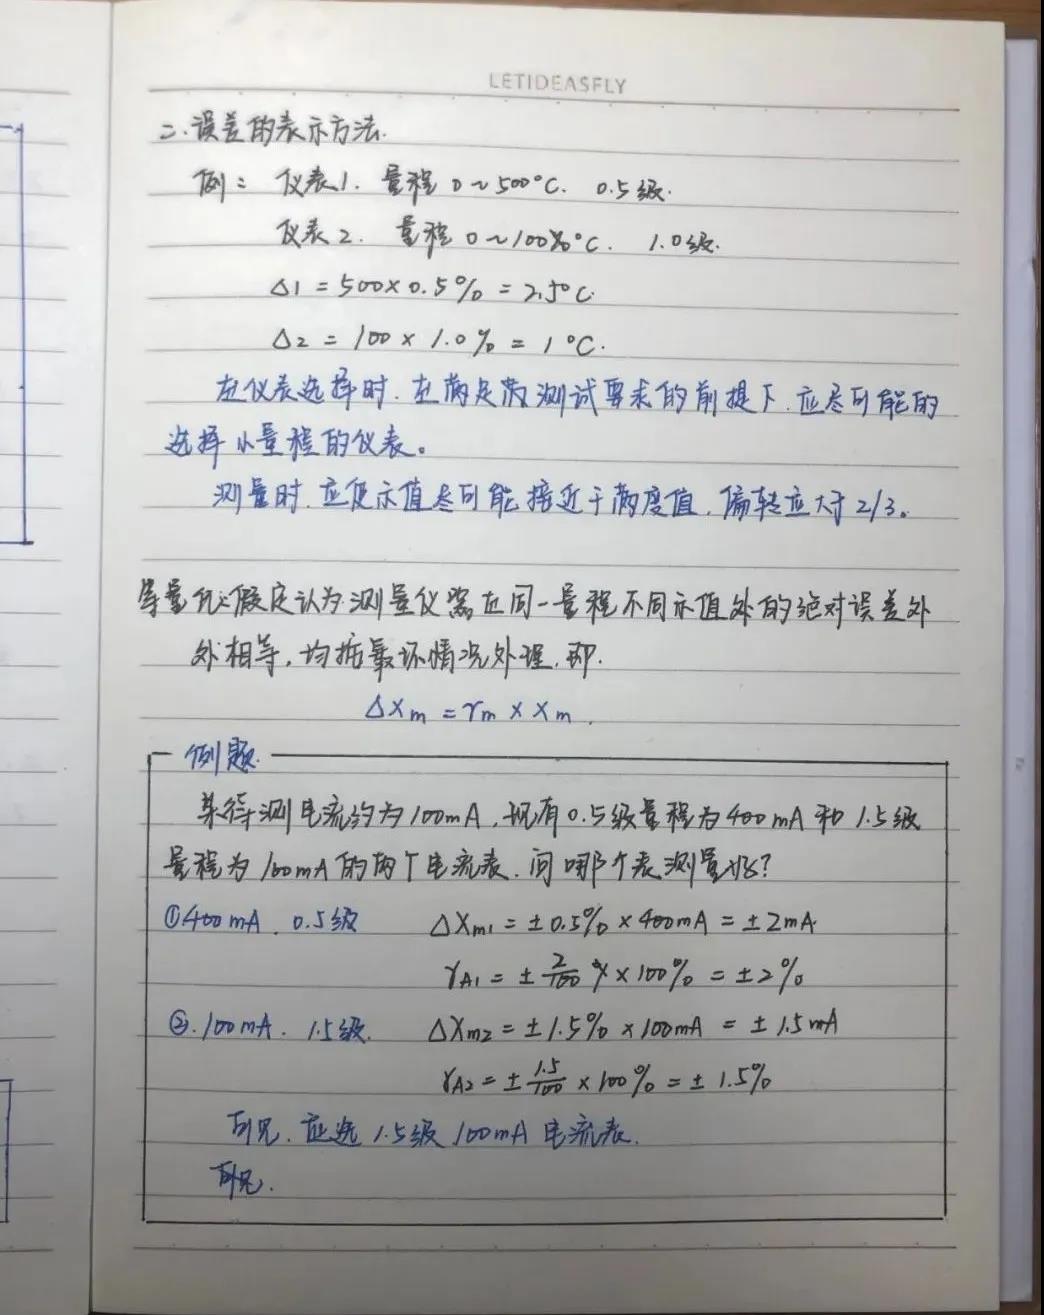 LETIDEASFLY
二.误差的表示方法.
例: 仪表1. 量程 0~500°C. 0.5级.
仪表2. 量程 0~100°C. 1.0级.
Δ1 = 500×0.5% = 2.5°C.
Δ2 = 100 × 1.0% = 1°C.
在仪表选择时.在满足测试要求的前提下.应尽可能的
选择小量程的仪表。
测量时.应使示值尽可能接近于满度值.偏转应大于2/3。
等量化:假定认为测量仪器在同一量程不同示值处的绝对误差处
处相等,均按最坏情况处理.即.
ΔXm = rm × Xm.
例题.
某待测电流约为100mA,现有0.5级量程为400mA和1.5级
量程为100mA的两个电流表.问哪个表测量好?
①400mA. 0.5级 ΔXm1 = ±0.5% × 400mA = ±2mA.
γA1 = ± 2/100 × 100% = ±2%
②.100mA. 1.5级. ΔXm2 = ±1.5% × 100mA = ±1.5mA
γA2 = ± 1.5/100 × 100% = ± 1.5%
可见.应选1.5级100mA电流表.
可见.